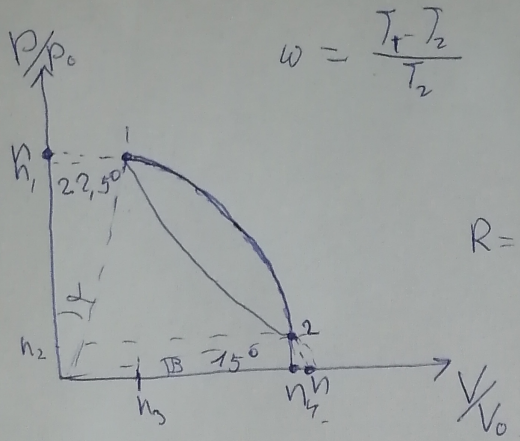 P/P₀
ω = (T₁ - T₂) / T₂
1
n₁
22,5°
R =
α
2
n₂
β = 15°
n₃
n₄
n
V/V₀